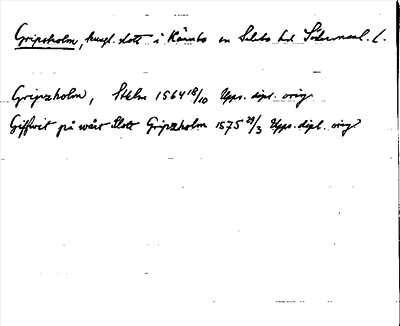 Gripsholm, kungl. slott i Kärnbo sn Selebo hd Södermanl. l.
Gripzholm, Sthlm 1564 18/10 Upps. dipl. orig.
Giffwit på wårt Slott Gripzholm 1575 29/3 Upps. dipl. orig.